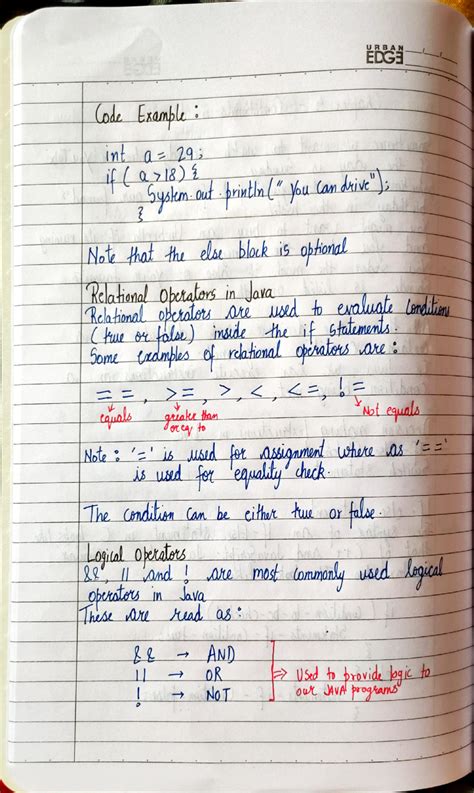 URBAN
EDGE
Code Example :
int a = 29;
if ( a>18) {
System.out.println(" You can drive");
}
Note that the else block is optional
Relational Operators in Java
Relational operators are used to evaluate conditions
(true or false) inside the if statements.
Some examples of relational operators are :
= = , >= , > , < , <= , ! =
equals
greater than
or eq. to
Not equals
Note : '=' is used for assignment where as '=='
is used for equality check.
The condition can be either true or false.
Logical Operators
&&, || and ! are most commonly used logical
operators in Java
These are read as :
&& → AND
|| → OR
! → NOT
⇒ Used to provide logic to
our JAVA programs